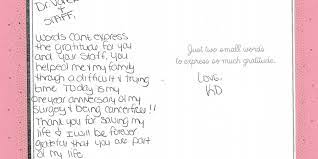 Dr.
&
STAFF,
Words cant express
the gratitude for you
and your staff, you
helped me & my family
through a difficult & trying
time Today is my
one year anniversary of my
surgery & being cancer free!!
Thank you for saving my
life & I will be forever
grateful that you are part
of my life
Just two small words
to express so much gratitude.
Love,
KD